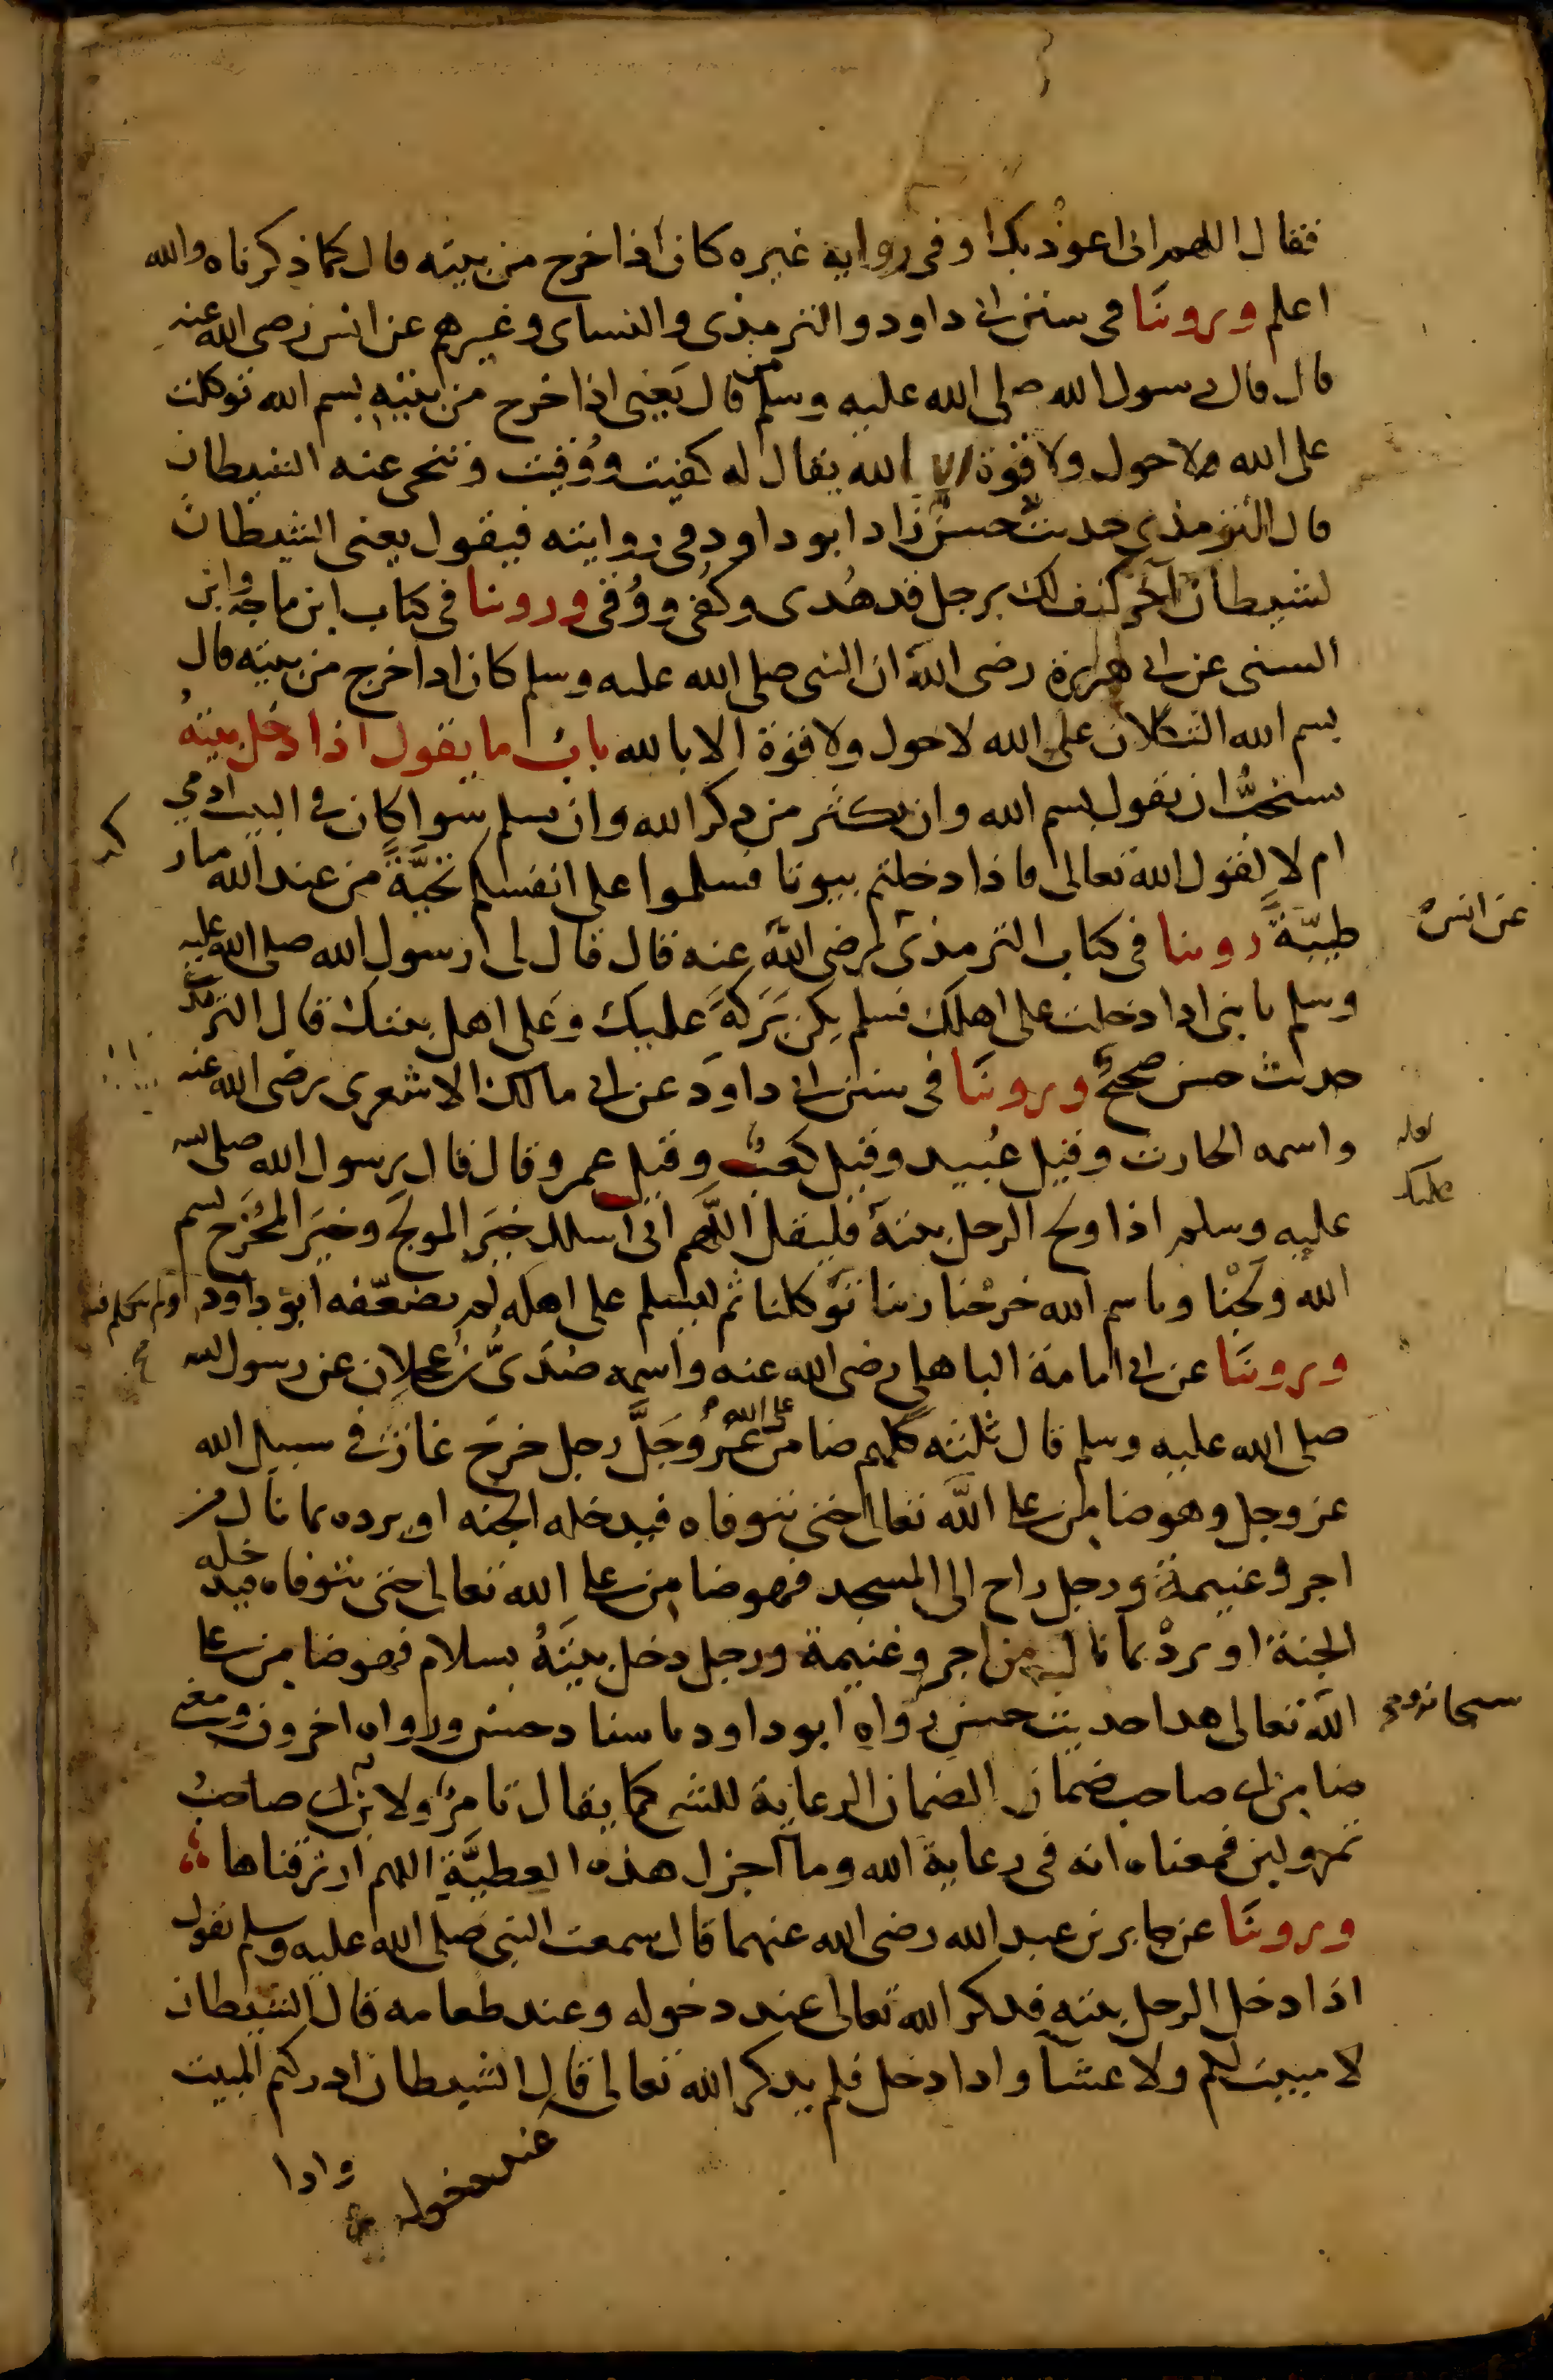 فقال اللهم انى اعوذ بك وفى رواية غيره كان اذا خرج من بيته قال كما ذكرناه والله
اعلم وروينا فى سنن ابى داود والترمذى والنساى وغيرهم عن انس رضى الله عنه
قال قال رسول الله صلى الله عليه وسلم من قال يعنى اذا خرج من بيته بسم الله توكلت
على الله ولا حول ولا قوة الا بالله يقال له كفيت ووقيت وتنحى عنه الشيطان
قال الترمذى حديث حسن زاد ابو داود فى روايته فيقول يعنى الشيطان
لشيطان آخر كيف لك برجل قد هُدى وكُفى ووُقى وروينا فى كتاب ابن ماجه وابن
السنى عن ابى هريرة رضى الله ان النبى صلى الله عليه وسلم كان اذا خرج من بيته قال
بسم الله التكلان على الله لا حول ولا قوة الا بالله باب ما يقول اذا دخل بيته
يستحبُّ ان يقول بسم الله وان يكثر من ذكر الله وان يسلم سوا كان فى البيت ادمى
ام لا لقول الله تعالى فاذا دخلتم بيوتا فسلموا على انفسكم تحيَّةً من عند الله مبار
كه
طيبّةً روينا فى كتاب الترمذى رضى الله عنه قال قال لى رسول الله صلى الله عليه
عن انس
وسلم يا بنى اذا دخلت على اهلك فسلم يكن بَرَكةً عليك وعَلى اهل بيتك قال الترمذى
حديث حسن صحيح وروينَا فى سنن ابى داود عن ابى مالك الاشعرى رضى الله عنه
واسمه الحارث وقيل عُبيد وقيل كعبٌ وقيل عمرو قال قال رسول الله صلى الله
عليه وسلم اذا ولج الرجل بيته فليقل اللَّهم انى اسلك خيَر المولج وخيَر المخرَج بسم
الله ولجْنا وباسم الله خرجْنا ربنا توكلنا ثم ليسلم على اهله لم يضعّفه ابو داود
وروينَا عن ابى امامة الباهلى رضى الله عنه واسمه صُدَىُّ بن عجلان عن رسول الله
صلى الله عليه وسلم قال ثلثة كلهم ضامن على الله عزوجَلَّ رجل خرج غازٍ فى سبيل الله
عز وجل وهو ضامن على الله تعالى حتى يتوفاه فيدخله الجنه او يرده بما نال من
اجر وغنيمة ورجل راح الى المسجد فهو ضامن على الله تعالى حتى يتوفاه فيدخله
الجنة او يردْ بما نال من اجر وغنيمة ورجل دخل بيتَهُ بسلام فهو ضامن على
الله تعالى هذا حديث حسن رواه ابو داود باسناد حسن ورواه اخرون ومعنى
ضامن اى صاحب ضمان الضمان الرعاية للشى كما يقال تامرٌ ولابن اى صاحبُ
تمر ولبن فمعناه انه فى رعاية الله وما اجزل هذه العطيَّةِ اللهم ارزقناها
وروينَا عن جابر بن عبد الله رضى الله عنهما قال سمعت النبى صلى الله عليه وسلم يقول
اذا دخل الرجل بيته فذكر الله تعالى عند دخوله وعند طعامه قال الشيطان
لا مبيت لكم ولا عشآ واذا دخل فلم يذكر الله تعالى قال الشيطان ادركتم المبيت
عند دخوله
واذا